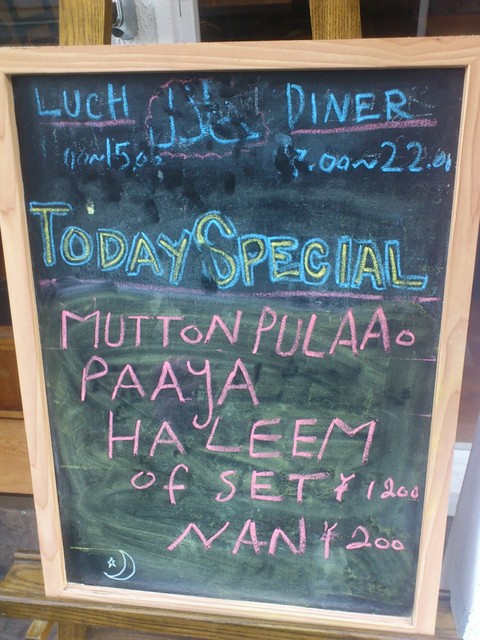 LUCH حلال DINER
~15.00 7.00~22.00
TODAY SPECIAL
MUTTON PULAAo
PAAyA
HALEEM
of SET ¥1200
NAN ¥200